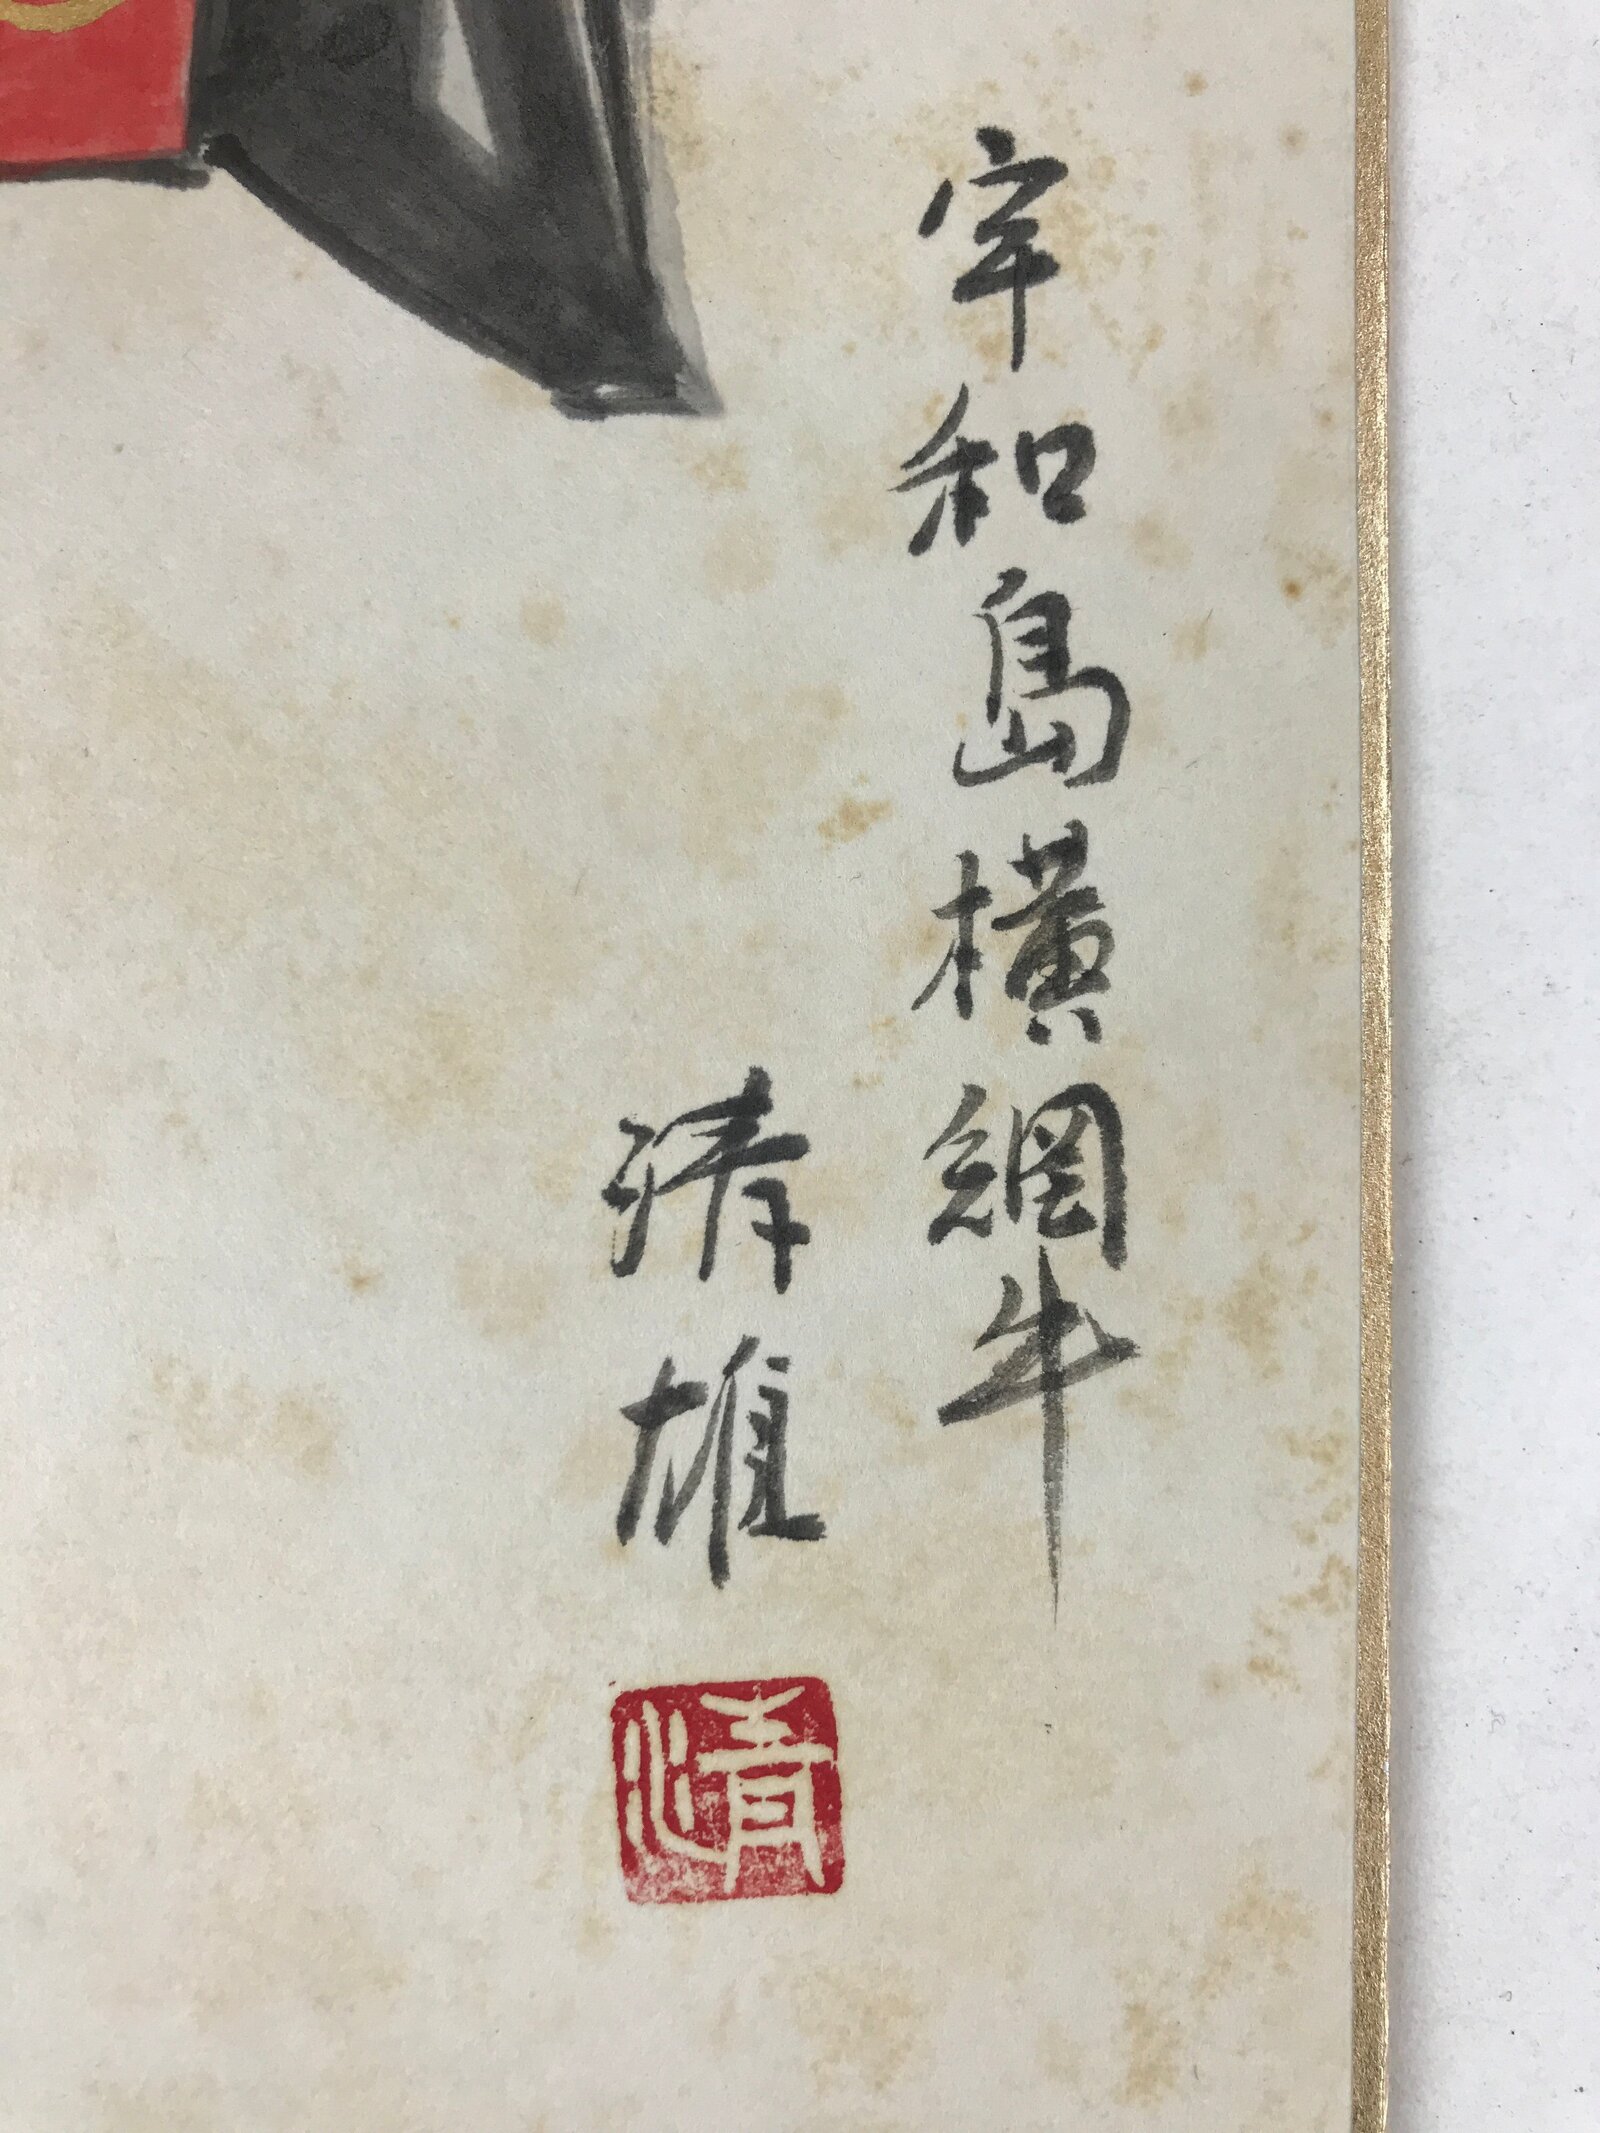 宇和島横綱牛
清雄
清